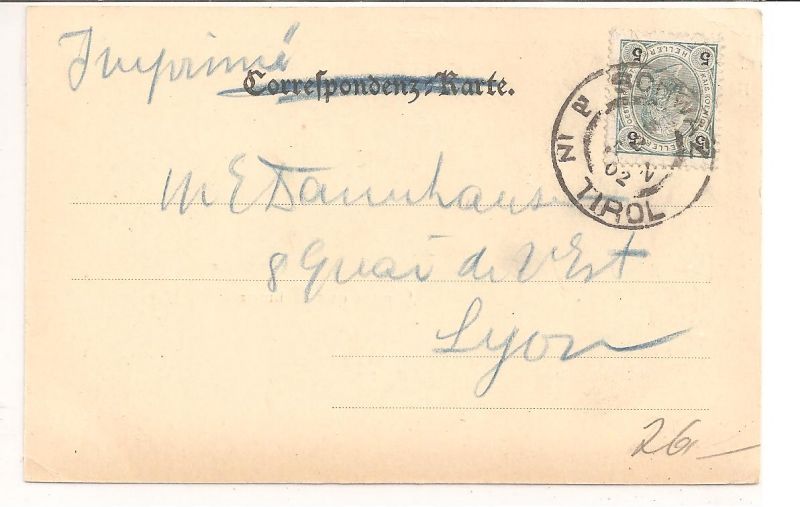 Imprimé
Correspondenz-Karte.
5 HELLER 5
5 HELLER 5
IN TIROL
02
M E Dannhauser
8 Quai de l'Est
Lyon
26 —